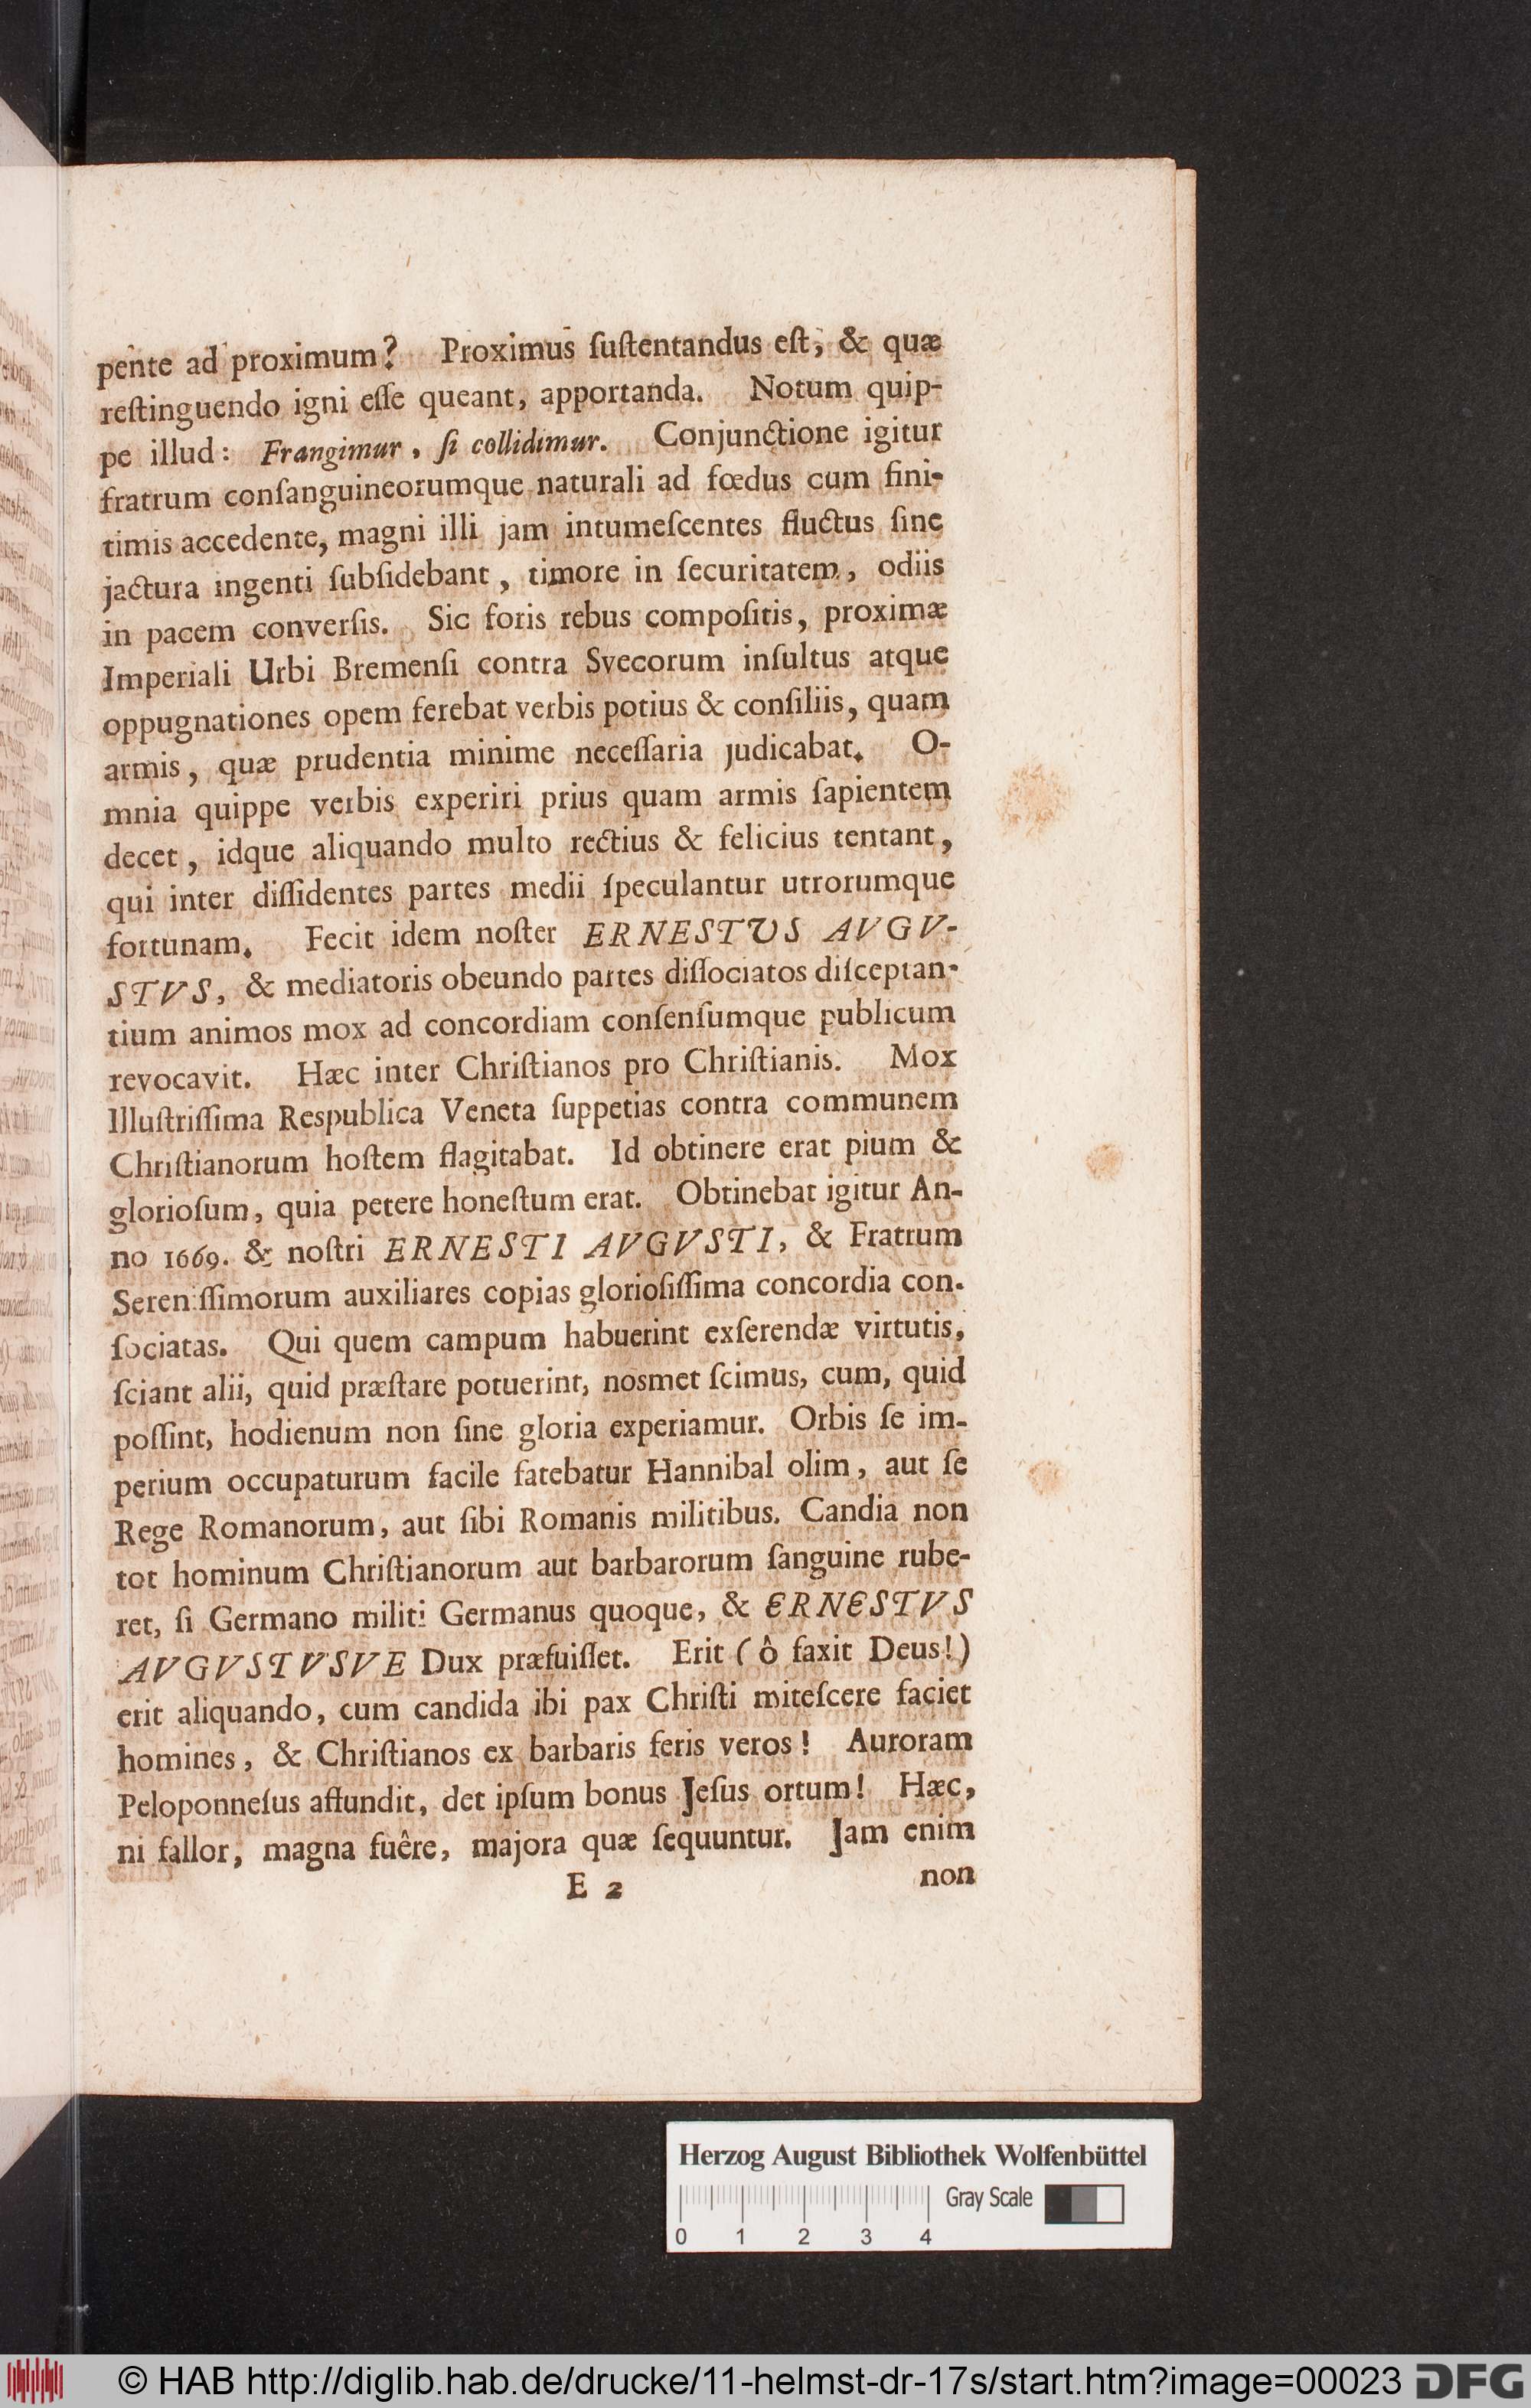 pente ad proximum? Proximus ſuſtentandus eſt, & quæ
reſtinguendo igni eſſe queant, apportanda. Notum quip-
pe illud: Frangimur, ſi collidimur. Conjunctione igitur
fratrum conſanguineorumque naturali ad fœdus cum fini-
timis accedente, magni illi jam intumeſcentes fluctus ſine
jactura ingenti ſubſidebant, timore in ſecuritatem, odiis
in pacem converſis. Sic foris rebus compoſitis, proximæ
Imperiali Urbi Bremenſi contra Svecorum inſultus atque
oppugnationes opem ferebat verbis potius & conſiliis, quam
armis, quæ prudentia minime neceſſaria judicabat. O-
mnia quippe verbis experiri prius quam armis ſapientem
decet, idque aliquando multo rectius & felicius tentant,
qui inter diſſidentes partes medii ſpeculantur utrorumque
fortunam. Fecit idem noſter ERNESTUS AVGV-
STVS, & mediatoris obeundo partes diſſociatos diſceptan-
tium animos mox ad concordiam conſenſumque publicum
revocavit. Hæc inter Chriſtianos pro Chriſtianis. Mox
Illuſtriſſima Respublica Veneta ſuppetias contra communem
Chriſtianorum hoſtem flagitabat. Id obtinere erat pium &
glorioſum, quia petere honeſtum erat. Obtinebat igitur An-
no 1669. & noſtri ERNESTI AVGVSTI, & Fratrum
Sereniſſimorum auxiliares copias glorioſiſſima concordia con-
ſociatas. Qui quem campum habuerint exſerendæ virtutis,
ſciant alii, quid præſtare potuerint, nosmet ſcimus, cum, quid
poſſint, hodienum non ſine gloria experiamur. Orbis ſe im-
perium occupaturum facile fatebatur Hannibal olim, aut ſe
Rege Romanorum, aut ſibi Romanis militibus. Candia non
tot hominum Chriſtianorum aut barbarorum ſanguine rube-
ret, ſi Germano militi Germanus quoque, & ERNESTVS
AVGVSTVSVE Dux præfuiſſet. Erit (ô faxit Deus!)
erit aliquando, cum candida ibi pax Chriſti miteſcere faciet
homines, & Chriſtianos ex barbaris feris veros! Auroram
Peloponneſus affundit, det ipſum bonus Jeſus ortum! Hæc,
ni fallor, magna fuêre, majora quæ ſequuntur. Jam enim
E 2 non
Herzog August Bibliothek Wolfenbüttel
Gray Scale
0 1 2 3 4
© HAB http://diglib.hab.de/drucke/11-helmst-dr-17s/start.htm?image=00023 DFG